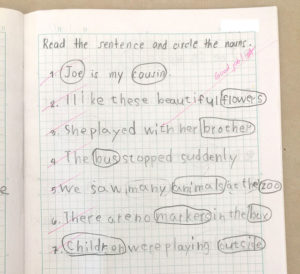 Read the sentence and circle the nouns.
1. Joe is my cousin.
2. I like these beautiful flowers
3. She played with her brother
4. The bus stopped suddenly
5 we saw many animals at the zoo
6. There are no markers in the box
7. Children were playing outside